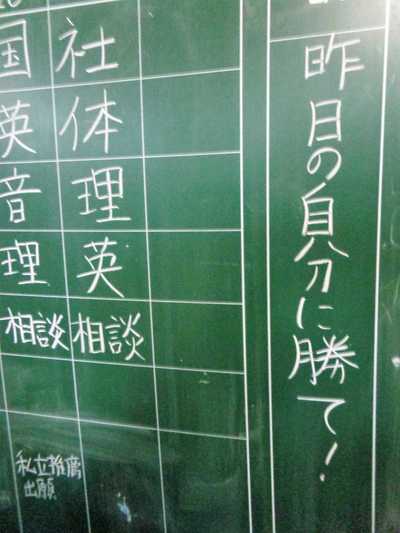 昨日の自分に勝て！
社
体
理
英
相談
国
英
音
理
相談
私立推薦
出願